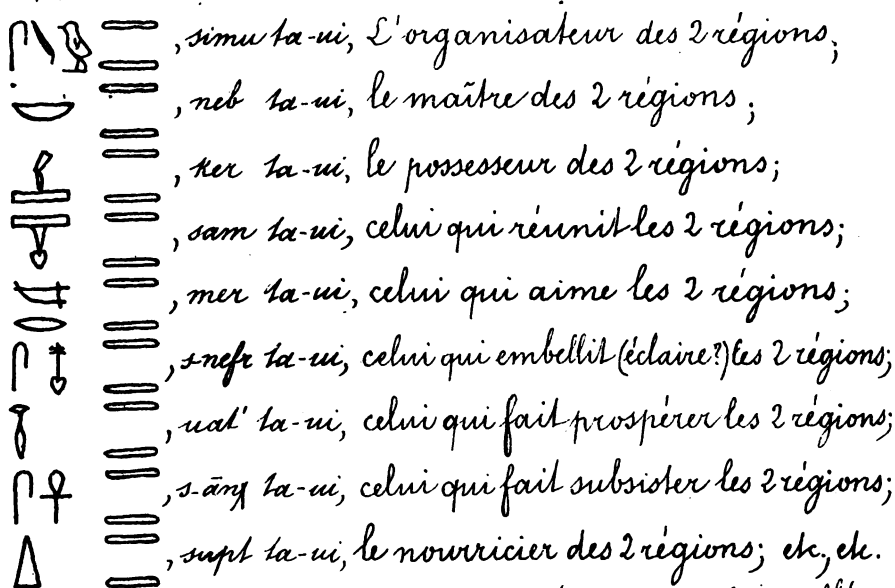 , simu ta-ui, L'organisateur des 2 régions;
, neb ta-ui, le maître des 2 régions;
, ker ta-ui, le possesseur des 2 régions;
, sam ta-ui, celui qui réunit les 2 régions;
, mer ta-ui, celui qui aime les 2 régions;
, s-nefr ta-ui, celui qui embellit (éclaire?) les 2 régions;
, uat' ta-ui, celui qui fait prospérer les 2 régions;
, s-ānχ ta-ui, celui qui fait subsister les 2 régions;
, supt ta-ui, le nourricier des 2 régions; etc, etc.